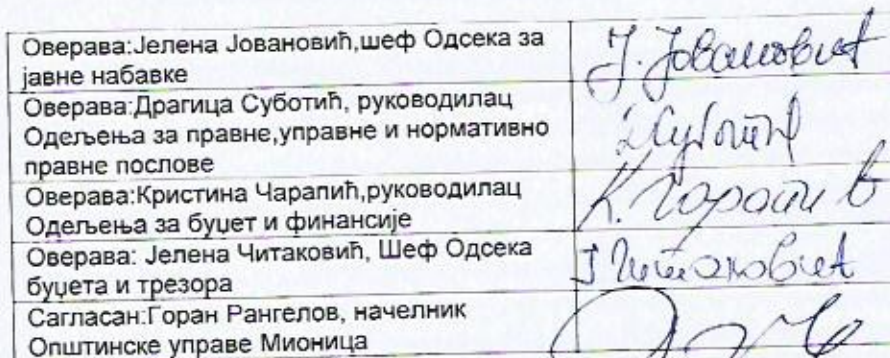 Оверава:Јелена Јовановић,шеф Одсека за
јавне набавке
Ј. Јовановић
Оверава:Драгица Суботић, руководилац
Одељења за правне,управне и нормативно
правне послове
Оверава:Кристина Чарапић,руководилац
Одељења за буџет и финансије
К. Чарапић
Оверава: Јелена Читаковић, Шеф Одсека
буџета и трезора
Ј Читаковић
Сагласан:Горан Рангелов, начелник
Општинске управе Мионица